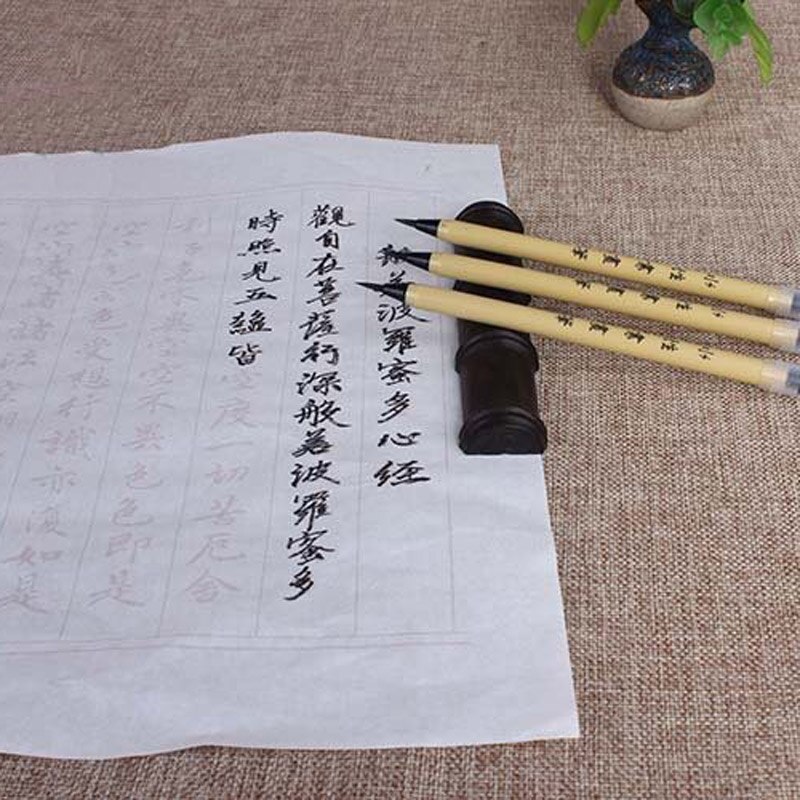 般若波羅蜜多心經
觀自在菩薩行深般若波羅蜜多
時照見五蘊皆空度一切苦厄舍
利子色不異空空不異色色即是
空空即是色受想行識亦復如是